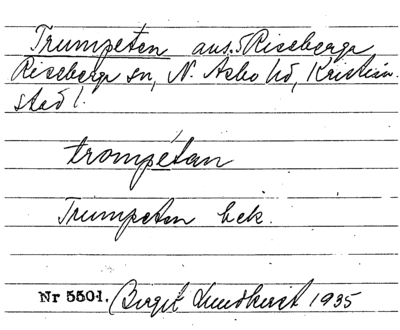 Trumpeten aus. 5 Riseberga
Riseberga sn, N. Åsbo hd, Kristian-
stad l.
trompétan
Trumpeten bek.
Nr 5501. Birgit Lundkvist 1935